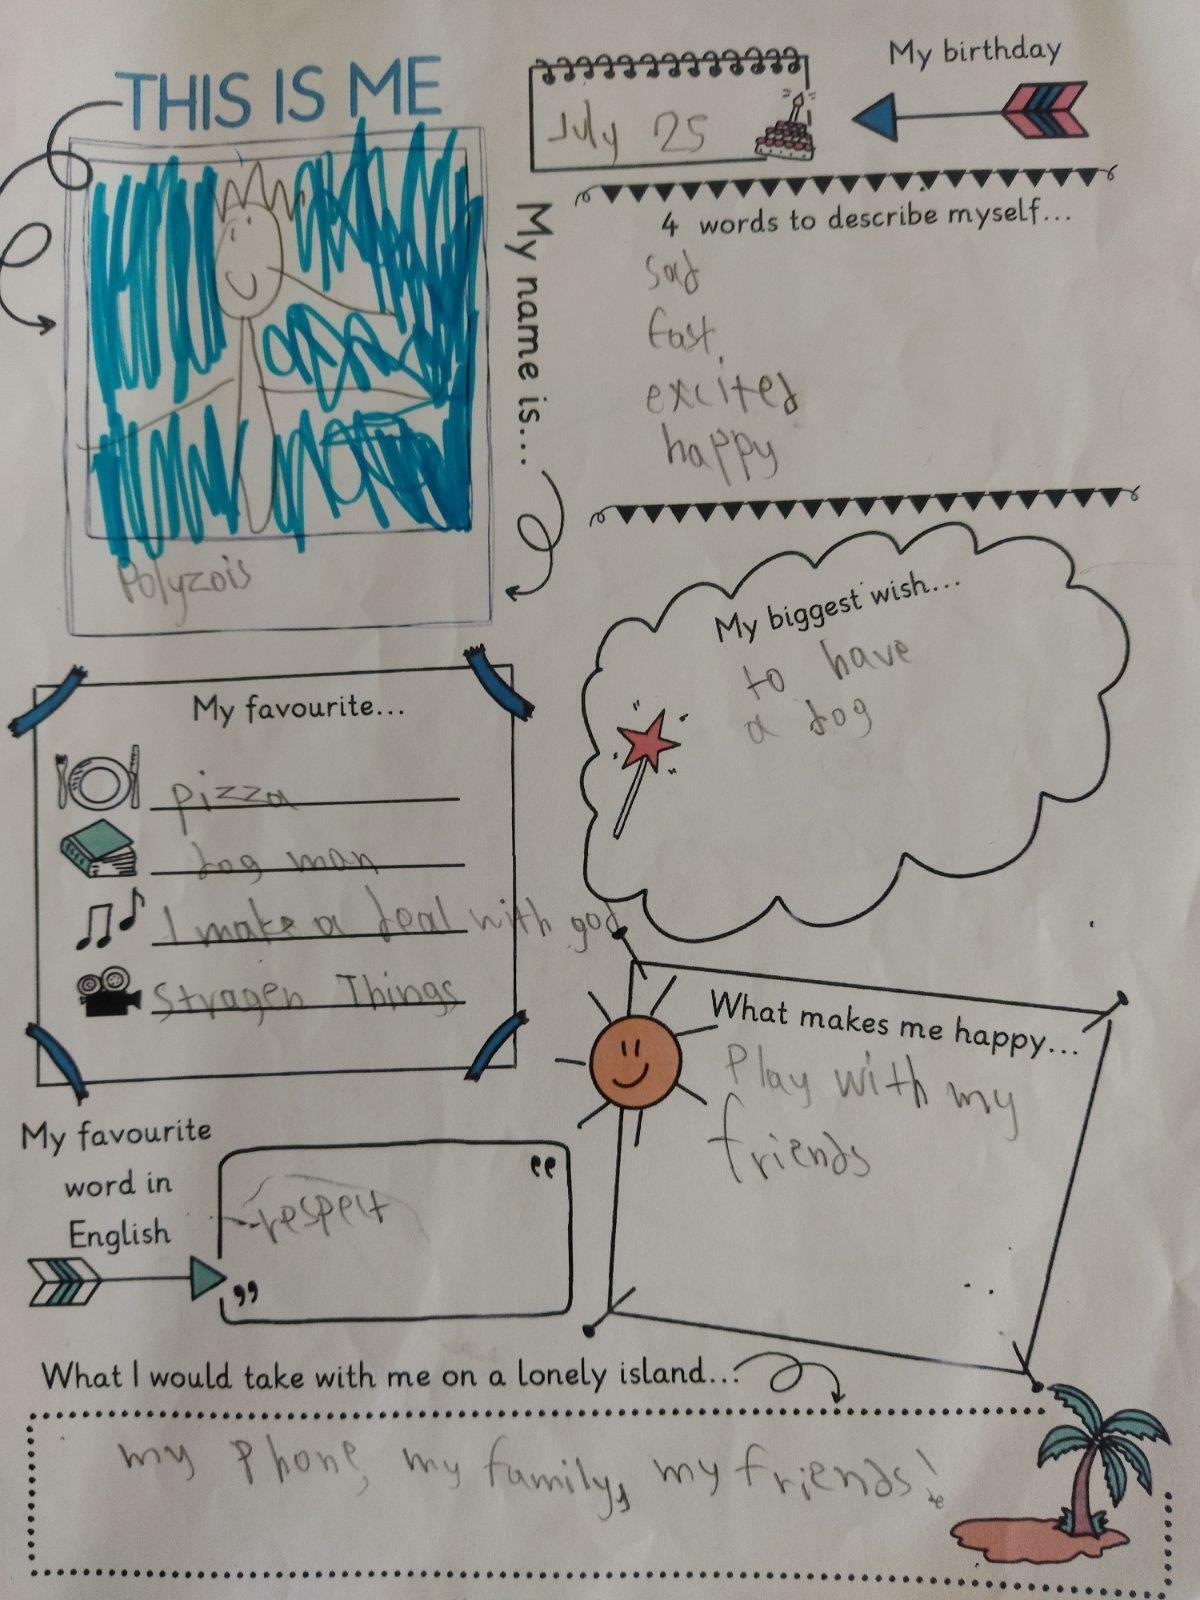 THIS IS ME
My birthday
July 25
My name is...
Polyzois
4 words to describe myself...
sad
fast
excited
happy
My biggest wish...
to have
a dog
My favourite...
pizza
dog man
I make a deal with god
Stragen Things
What makes me happy...
Play with my
friends
My favourite
word in
English
respect
What I would take with me on a lonely island...
my Phone, my family, my friends!